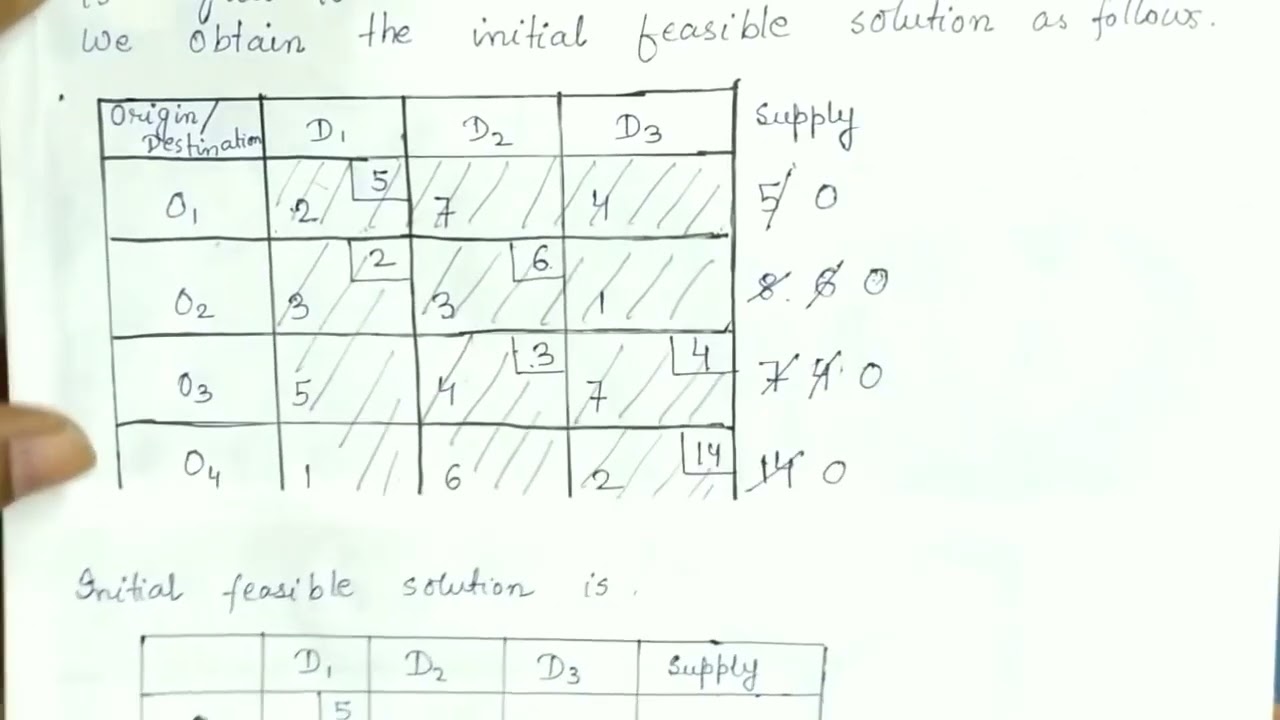 we obtain the initial feasible solution as follows.
Origin/ Destination D1 D2 D3 Supply
O1 2 5 7 4 5 0
O2 3 2 3 6 1 8 6 0
O3 5 4 3 7 4 7 4 0
O4 1 6 2 14 14 0
Initial feasible solution is.
D1 D2 D3 Supply
5